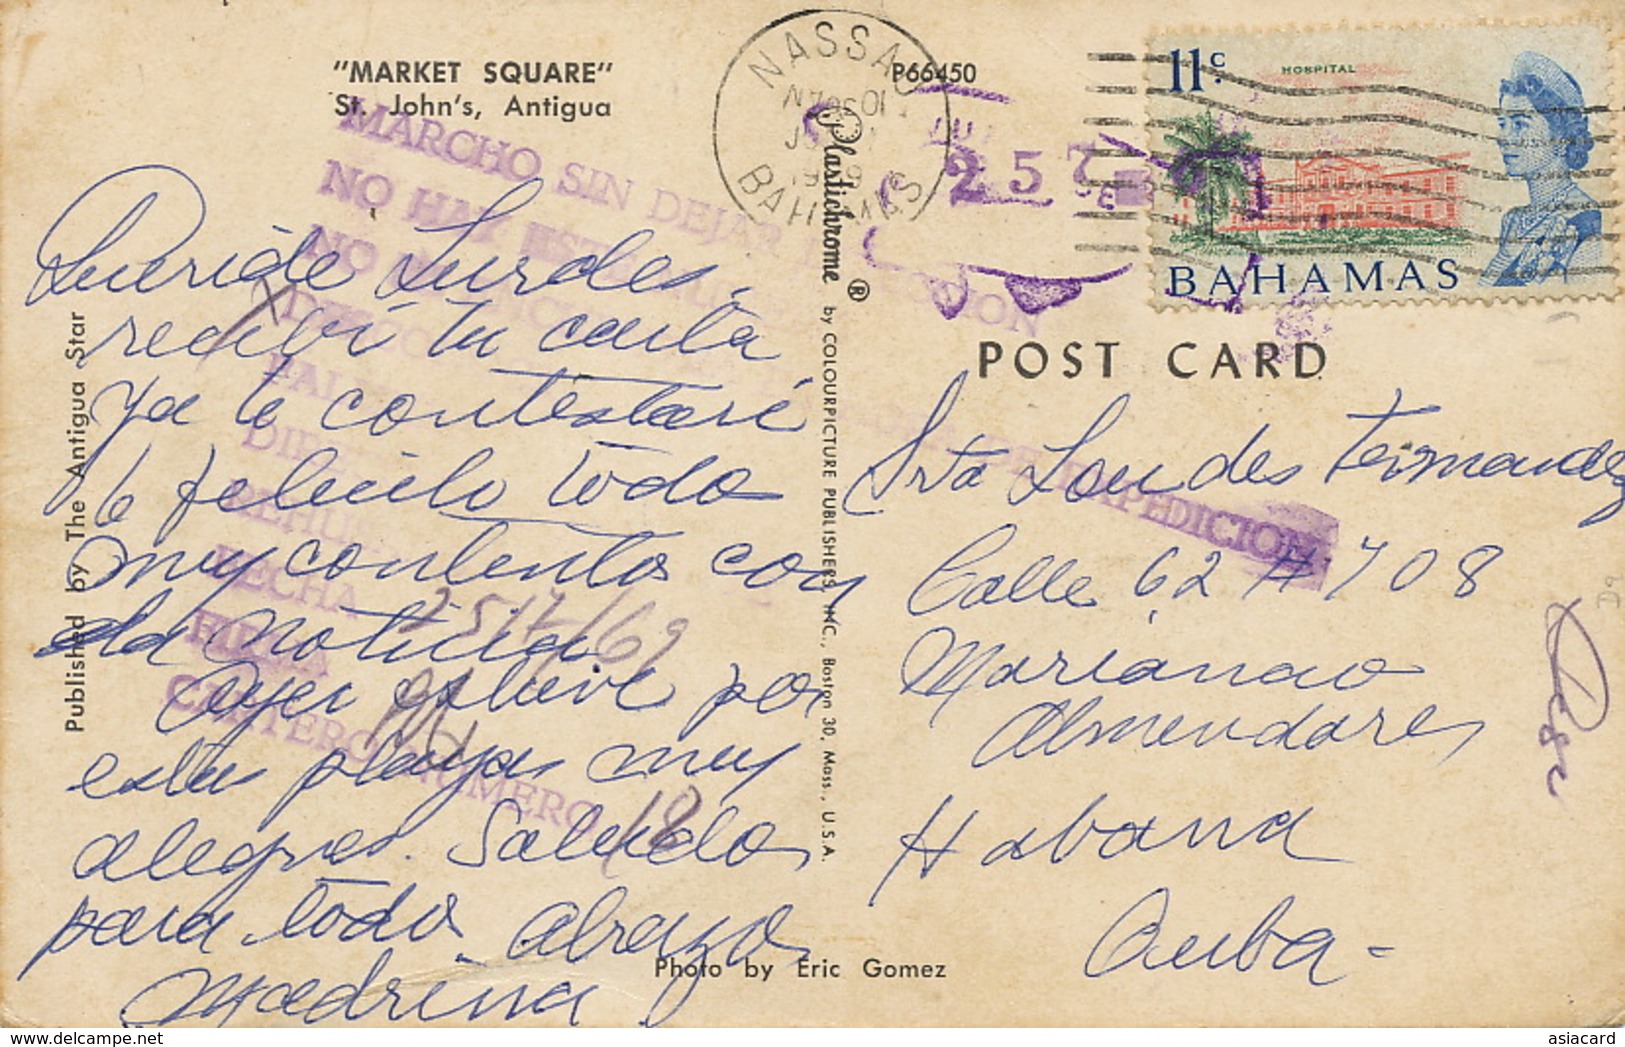 "MARKET SQUARE"
St. John's, Antigua
P66450
NASSAU
BAHAMAS
11c
HOSPITAL
BAHAMAS
257
POST CARD
MARCHO SIN DEJAR
NO HAY
NO
FECHA 25/7/69
FIRMA
CARTERO NUMERO 18
EXPEDICION
Queride Lurdes,
recibi tu carta
ya te contestaré
te felicito todos
muy contentos con
la noticia
Ayer estuve por
estas playas muy
alegres. Saludos
para todos abrazos
Madrina
Srta Lourdes Fernandez
Calle 62 # 708
Marianao
Almendares
Habana
Cuba-
Published by The Antigua Star
Plastichrome ® by COLOURPICTURE PUBLISHERS, INC., Boston 30, Mass., U.S.A.
Photo by Eric Gomez
D9
asiacard